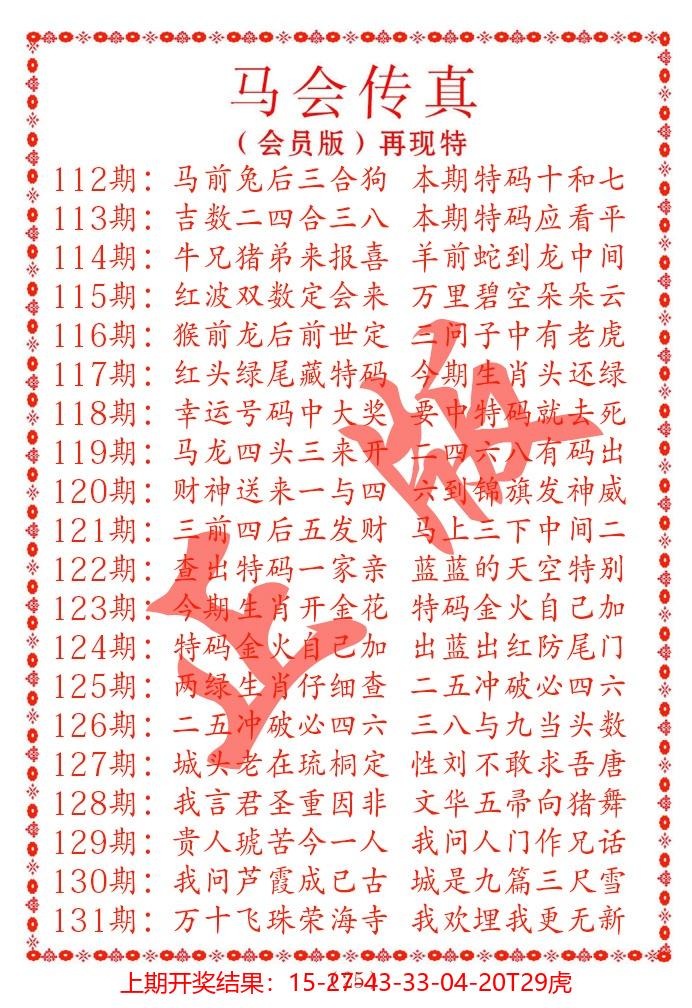 马会传真
（会员版）再现特
112期：马前兔后三合狗 本期特码十和七
113期：吉数二四合三八 本期特码应看平
114期：牛兄猪弟来报喜 羊前蛇到龙中间
115期：红波双数定会来 万里碧空朵朵云
116期：猴前龙后前世定 三问子中有老虎
117期：红头绿尾藏特码 今期生肖头还绿
118期：幸运号码中大奖 要中特码就去死
119期：马龙四头三来开 二四六八有码出
120期：财神送来一与四 六到锦旗发神威
121期：三前四后五发财 马上三下中间二
122期：查出特码一家亲 蓝蓝的天空特别
123期：今期生肖开金花 特码金火自己加
124期：特码金火自己加 出蓝出红防尾门
125期：两绿生肖仔细查 二五冲破必四六
126期：二五冲破必四六 三八与九当头数
127期：城头老在琉桐定 性刘不敢求吾唐
128期：我言君圣重因非 文华五帚向猪舞
129期：贵人琥苦今一人 我问人门作兄话
130期：我问芦霞成已古 城是九篇三尺雪
131期：万十飞珠荣海寺 我欢埋我更无新
正版
上期开奖结果：15-27-43-33-04-20T29虎